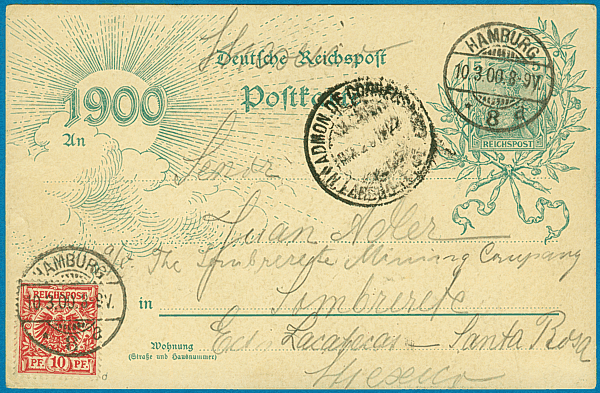 Deutsche Reichspost
Postkarte
1900
An
HAMBURG
10.3.00.8-9V.
* 8 d
REICHSPOST
ADMON DE CORREOS
Senor
Juan Adler
c/o The Sombrerete Mining Company
in Sombrerete
Wohnung
(Straße und Hausnummer)
Est. Zacatecas - Santa Rosa
Mexico
HAMBURG
10.3.00.8-9V.
REICHSPOST
PF. 10 PF.
d